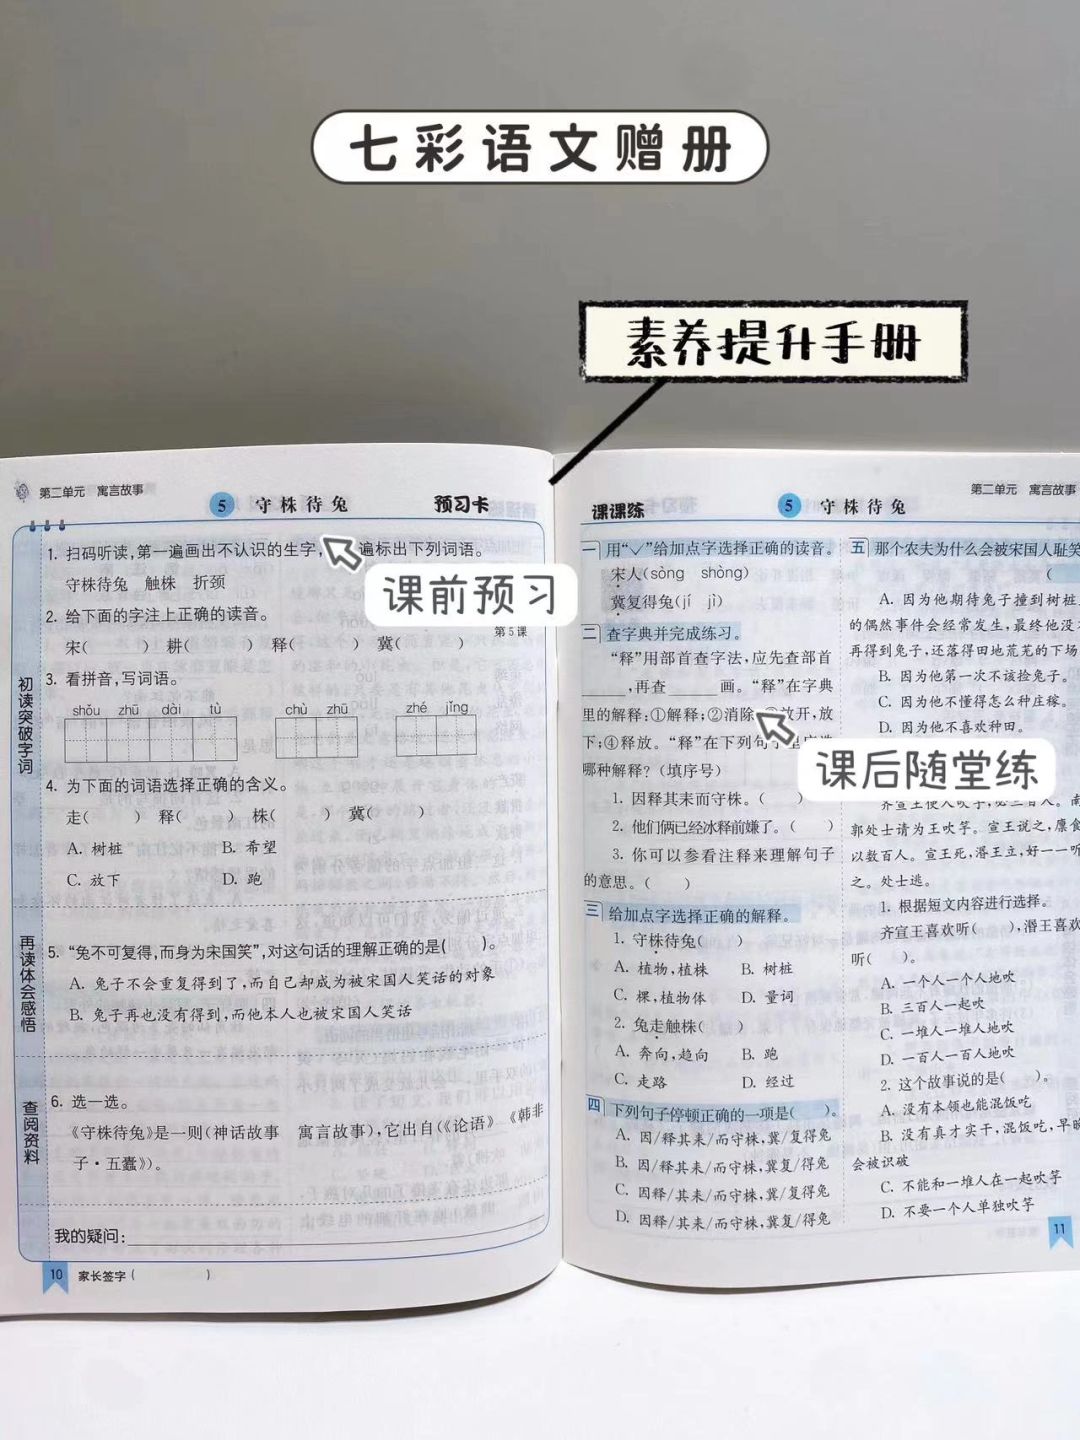 七彩语文赠册
素养提升手册
第二单元 寓言故事
5 守株待兔 预习卡
1. 扫码听读,第一遍画出不认识的生字,
遍标出下列词语。
守株待兔 触株 折颈
课前预习
第5课
2. 给下面的字注上正确的读音。
宋( ) 耕( ) 释( ) 冀( )
初读突破字词
3. 看拼音,写词语。
shǒu zhū dài tù chù zhū zhé jǐng
4. 为下面的词语选择正确的含义。
走( ) 释( ) 株( ) 冀( )
A. 树桩 B. 希望
C. 放下 D. 跑
再读体会感悟
5. “兔不可复得,而身为宋国笑”,对这句话的理解正确的是( )。
A. 兔子不会重复得到了,而自己却成为被宋国人笑话的对象
B. 兔子再也没有得到,而他本人也被宋国人笑话
查阅资料
6. 选一选。
《守株待兔》是一则(神话故事 寓言故事),它出自(《论语》 《韩非
子·五蠹》)。
我的疑问:
10 家长签字( )
第二单元 寓言故事
课课练 5 守株待兔
一 用“✓”给加点字选择正确的读音。
宋人(sòng shòng)
冀复得兔(jí jì)
二 查字典并完成练习。
“释”用部首查字法,应先查部首
,再查 画。“释”在字典
里的解释:①解释;②消除 放开,放
下;④释放。“释”在下列句
哪种解释?(填序号)
1. 因释其耒而守株。( )
2. 他们俩已经冰释前嫌了。( )
3. 你可以参看注释来理解句子
的意思。( )
三 给加点字选择正确的解释。
1. 守株待兔( )
A. 植物,植株 B. 树桩
C. 棵,植物体 D. 量词
2. 兔走触株( )
A. 奔向,趋向 B. 跑
C. 走路 D. 经过
四 下列句子停顿正确的一项是( )。
A. 因/释其耒/而守株,冀/复得兔
B. 因/释其耒/而守株,冀复/得兔
C. 因释/其耒/而守株,冀/复得兔
D. 因释/其耒/而守株,冀复/得兔
五 那个农夫为什么会被宋国人耻笑
(
A. 因为他期待兔子撞到树桩
的偶然事件会经常发生,最终他没
再得到兔子,还落得田地荒芜的下场
B. 因为他第一次不该捡兔子。
C. 因为他不懂得怎么种庄稼。
D. 因为他不喜欢种田。
课后随堂练
齐宣王使人吹竽,必三百人。南
郭处士请为王吹竽。宣王说之,廪食
以数百人。宣王死,湣王立,好一一听
之。处士逃。
1. 根据短文内容进行选择。
齐宣王喜欢听( ),湣王喜欢
听( )。
A. 一个人一个人地吹
B. 三百人一起吹
C. 一堆人一堆人地吹
D. 一百人一百人地吹
2. 这个故事说的是( )。
A. 没有本领也能混饭吃
B. 没有真才实干,混饭吃,早晚
会被识破
C. 不能和一堆人在一起吹竽
D. 不要一个人单独吹竽
11